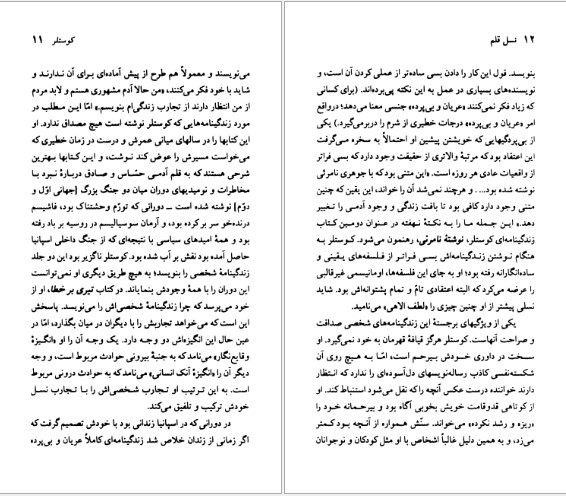 کوستلر ۱۱
می‌نویسند و معمولاً هم طرح از پیش آماده‌ای برای آن ندارند و
شاید با خود فکر می‌کنند، «من حالا آدم مشهوری هستم و لابد مردم
از من انتظار دارند از تجارب زندگی‌ام بنویسم.» امّا این مطلب در
مورد زندگینامه‌هایی که کوستلر نوشته است هیچ مصداق ندارد. او
این کتابها را در سالهای میانی عمرش و درست در زمان خطیری که
می‌خواست مسیرش را عوض کند نوشت، و این کتابها بهترین
شرحی هستند که به قلم آدمی حسّاس و صادق دربارهٔ نبرد با
مخاطرات و نومیدیهای دوران میان دو جنگ بزرگ [جهانی اوّل و
دوّم] نوشته شده است ــ دورانی که تورّم وحشتناک بود، فاشیسم
درنده‌خو سر بر کرده بود، و آرمان سوسیالیسم در روسیه بر باد رفته
بود و همهٔ امیدهای سیاسی با نتیجه‌ای که از جنگ داخلی اسپانیا
حاصل آمده بود نقش بر آب شده بود. کوستلر ناگزیر بود این دو جلد
زندگینامهٔ شخصی را بنویسد؛ به هیچ طریق دیگری او نمی‌توانست
این دوران را با همهٔ وجودش بنمایاند. در کتاب تیری بر خطا، او از
خود می‌پرسد که چرا زندگینامهٔ شخصی‌اش را می‌نویسد. پاسخش
این است که می‌خواهد تجاربش را با دیگران در میان بگذارد، امّا در
عین حال این انگیزه‌اش دو وجه دارد. یک وجه آن را او «انگیزهٔ
وقایع‌نگار» می‌نامد که به جنبهٔ بیرونی حوادث مربوط است، و وجه
دیگر آن را «انگیزهٔ آنک انسانی» می‌نامد که به حوادث درونی مربوط
است. به این ترتیب او تجارب شخصی‌اش را با تجارب نسل
خودش ترکیب و تلفیق می‌کند.
در دورانی که در اسپانیا زندانی بود با خودش تصمیم گرفت که
اگر زمانی از زندان خلاص شد زندگینامه‌ای کاملاً عریان و بی‌پرده
۱۲ نسل قلم
بنویسد. قول این کار را دادن بسی ساده‌تر از عملی کردن آن است، و
نویسنده‌های بسیاری در عمل به این نکته پی‌برده‌اند. (برای کسانی
که زیاد فکر نمی‌کنند «عریان و بی‌پرده» جنسی معنا می‌دهد؛ درواقع
امر «عریان و بی‌پرده» درجات خطیری از شرم را دربر می‌گیرد.) یکی
از بی‌پردگیهایی که خویشتن پیشین او احتمالاً به سخره می‌گرفت
این اعتقاد بود که مرتبهٔ والاتری از حقیقت وجود دارد که بسی فراتر
از واقعیات عادی هر روزه است. «این متنی بود که با جوهری نامرئی
نوشته شده بود.... و هرچند نمی‌شد آن را خواند، این یقین که چنین
متنی وجود دارد کافی بود تا بافت زندگی و وجود آدمی را تغییر
دهد.» این جمله ما را به نکتهٔ نهفته در عنوان دومین کتاب
زندگینامه‌ای کوستلر، نوشتهٔ نامرئی، رهنمون می‌شود. کوستلر به
هنگام نوشتن زندگینامه‌اش بسی فراتر از فلسفه‌های یقینی و
ساده‌انگارانه رفته بود؛ او به جای این فلسفه‌ها، اومانیسمی غیرقالبی
را عرضه می‌کرد که البته اعتقادی تامّ و تمام پشتوانه‌اش بود. شاید
نسلی پیشتر از او چنین چیزی را «لطف الاهی» می‌نامید.
یکی از ویژگیهای برجستهٔ این زندگینامه‌های شخصی صداقت
و صراحت آنهاست. کوستلر هرگز قیافهٔ قهرمان به خود نمی‌گیرد. او
سخت در داوری خودش بیرحم است، امّا به هیچ روی آن
شکسته‌نفسی کاذب رساله‌نویسهای دل‌آسوده‌ای را ندارد که انتظار
دارند خواننده درست عکس آنچه را که نقل می‌شود استنباط کند. او
از کوتاهی قدوقامت خویش بخوبی آگاه بود و بیرحمانه خود را
«ریزه و رشد نکرده» می‌خواند. سنّش همواره از آنچه بود کمتر
می‌زد، و به همین دلیل غالباً اشخاص با او مثل کودکان و نوجوانان